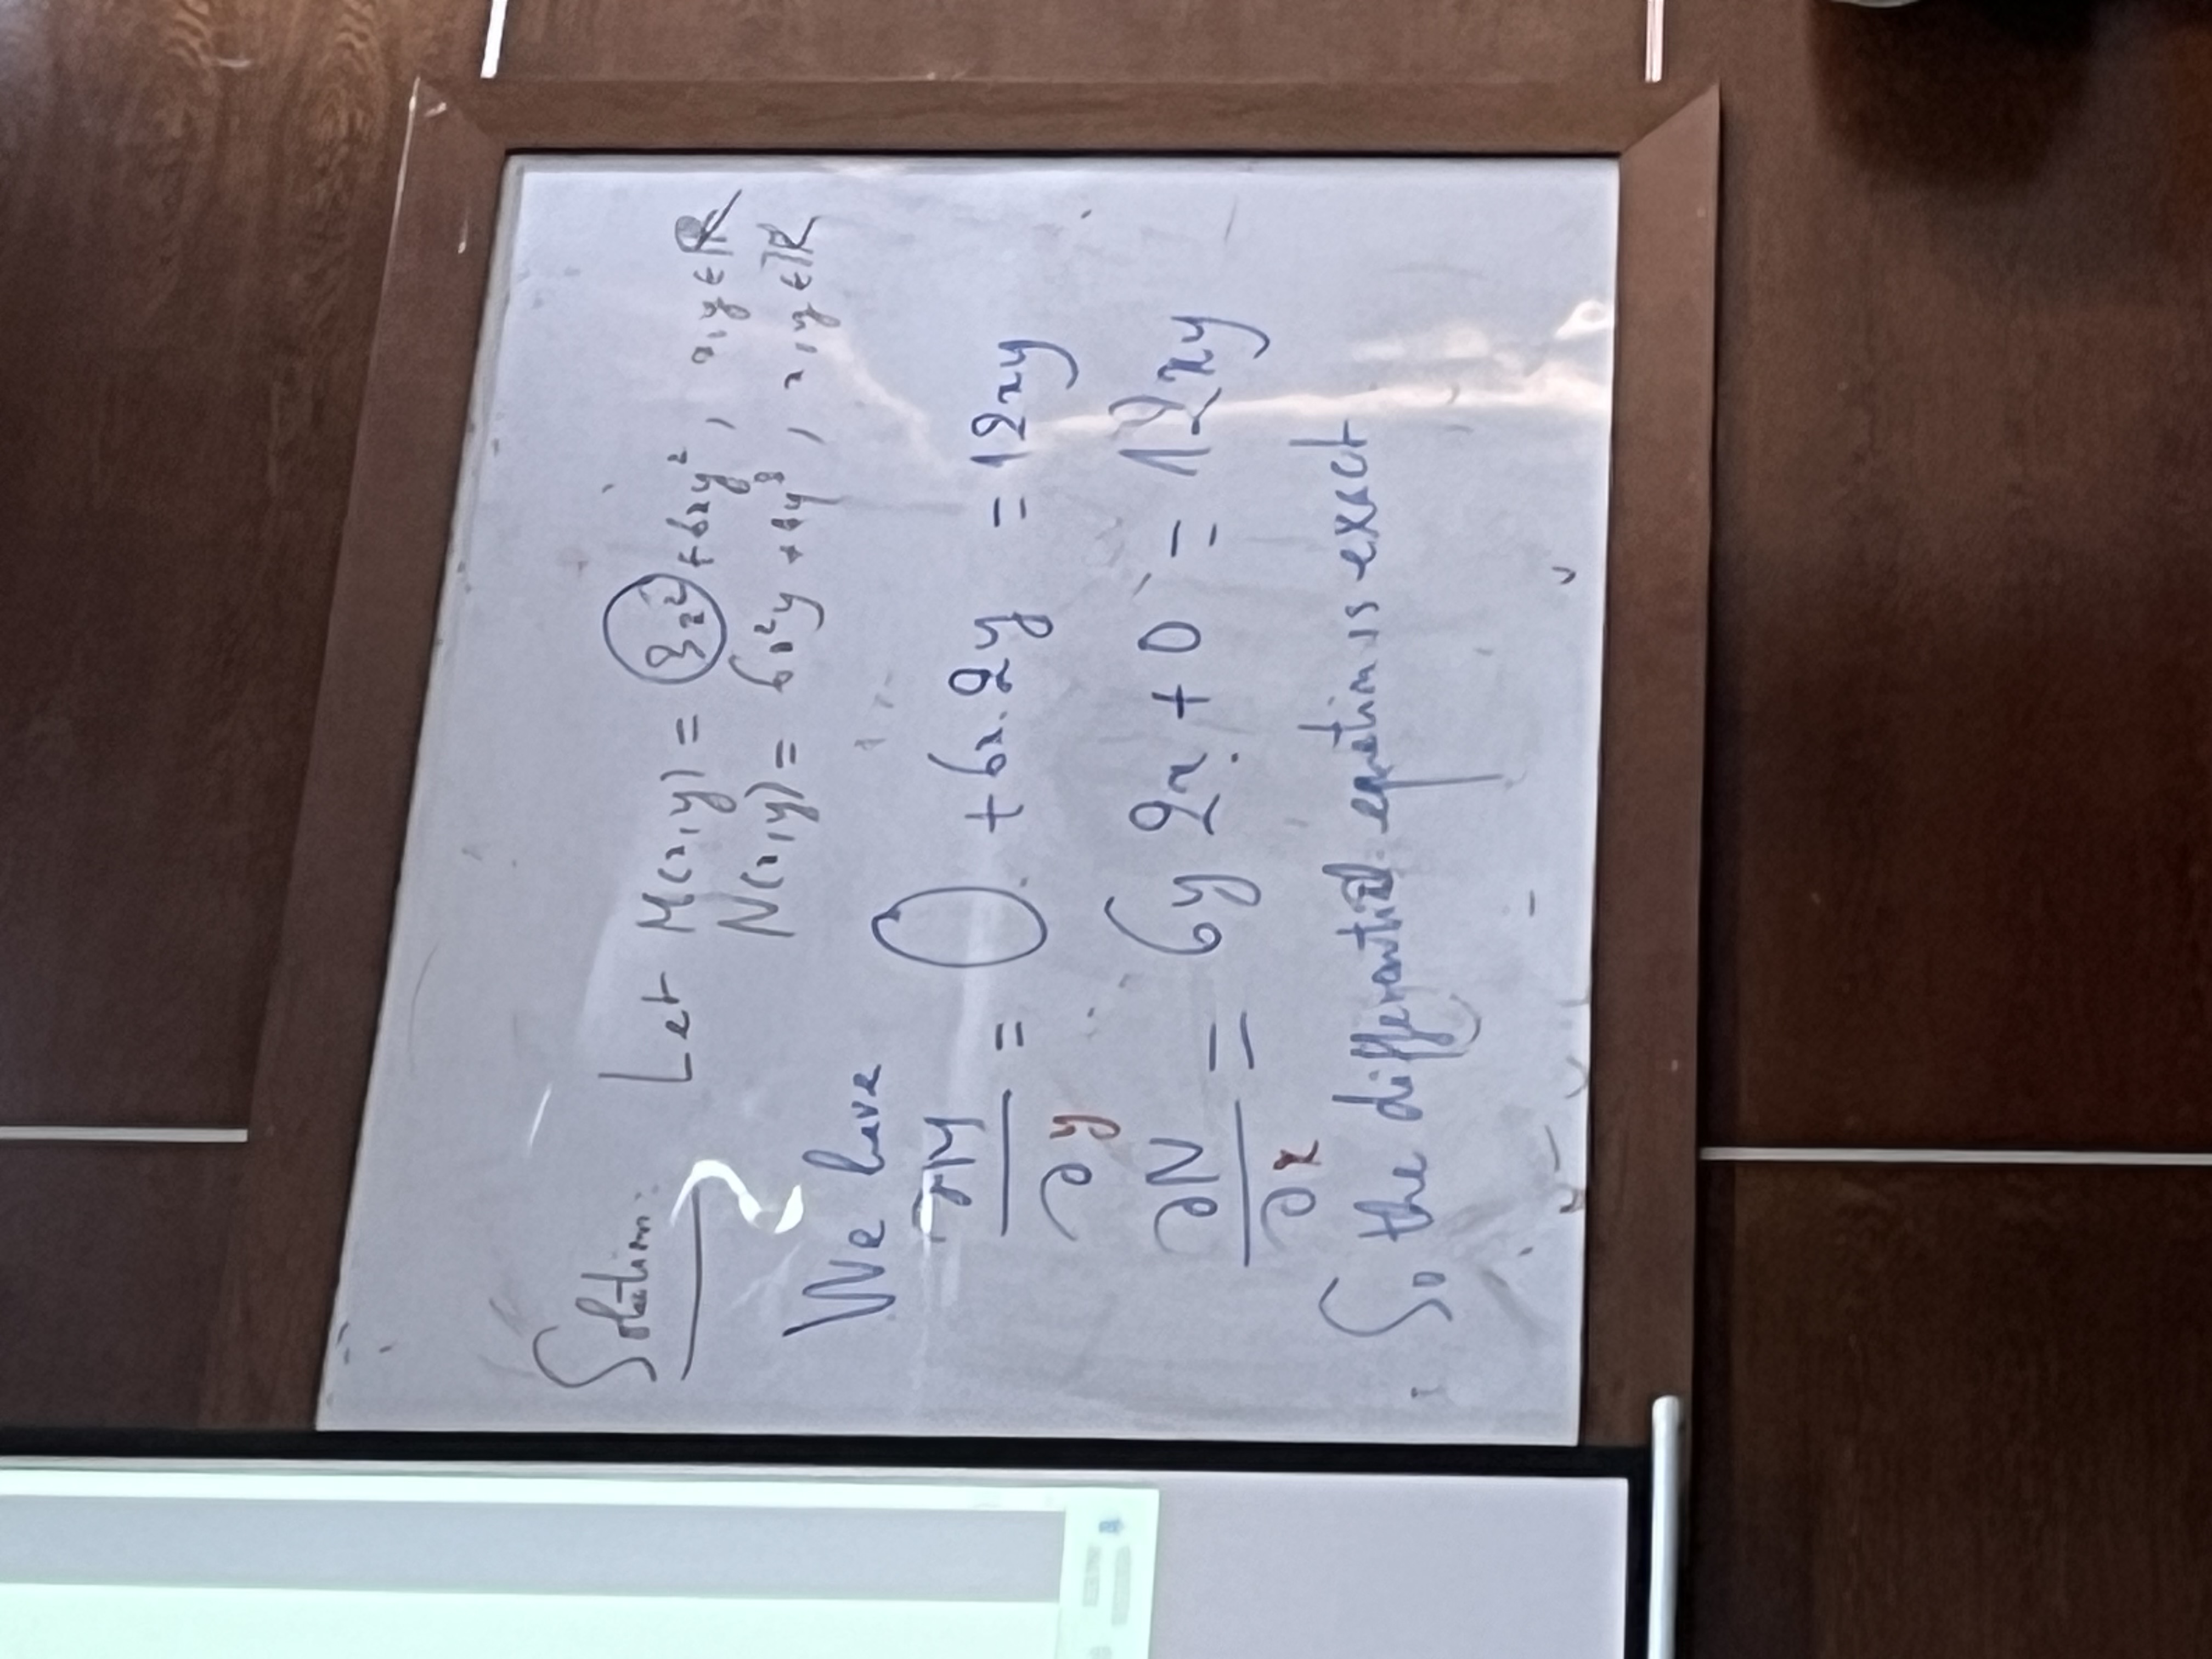 Solution: Let M(x,y) = 3x² + 6xy², x,y ∈ ℝ
N(x,y) = 6x²y + 4y³, x,y ∈ ℝ
We have
∂M/∂y = 0 + 6x. 2y = 12xy
∂N/∂x = 6y 2x + 0 = 12xy
So the differential equation is exact